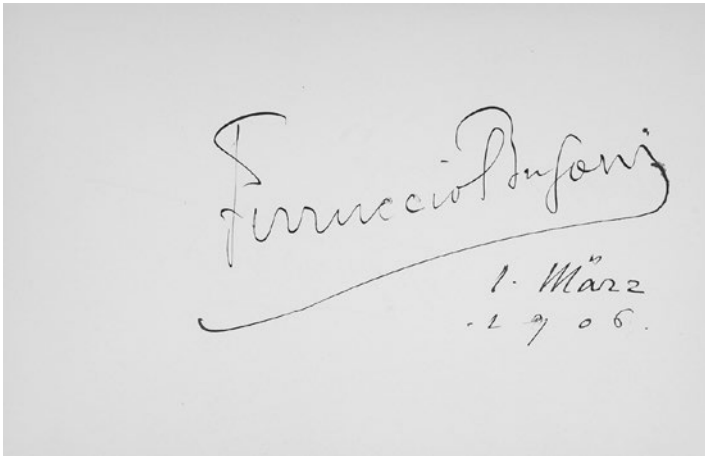 Ferruccio Busoni
1. März
1906.